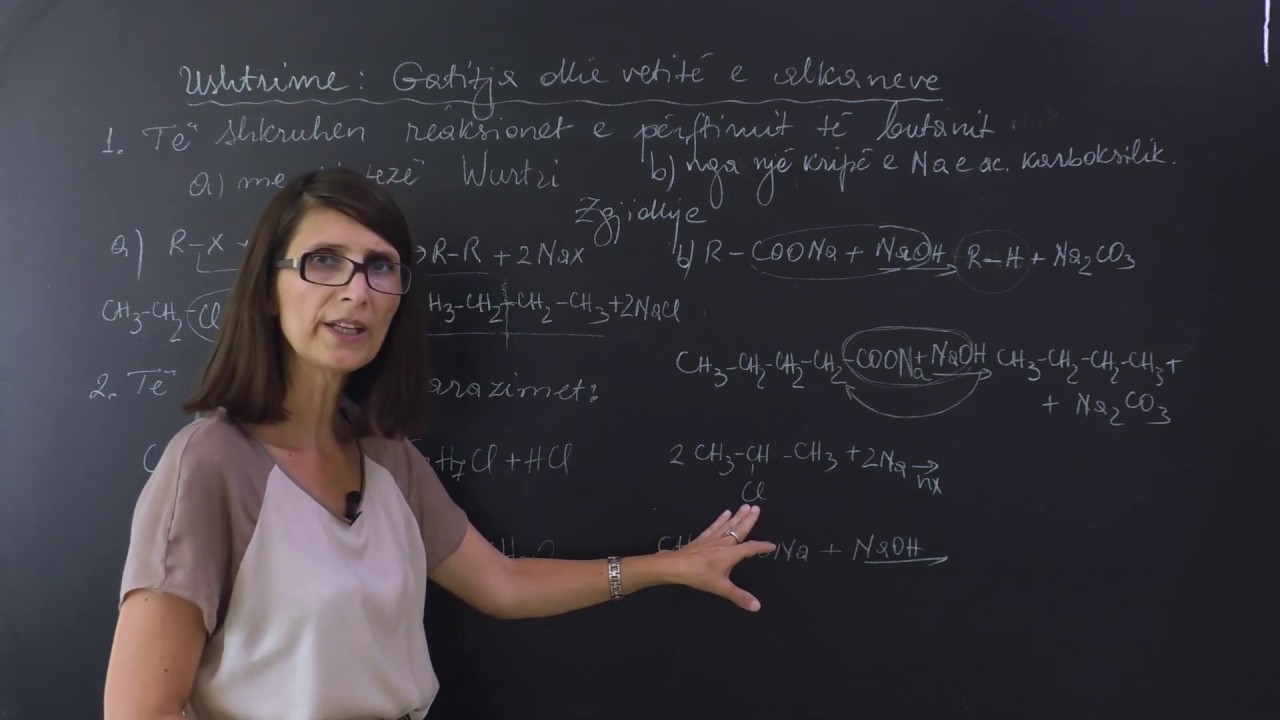 Ushtrime: Gatitja dhe vetitë e alkaneve
1. Të shkruhen reaksionet e përftimit të butanit
a) me Wurtzi b) nga një kripë e Na e ac. karboksilik.
Zgjidhje
a) R-X + → R-R + 2NaX b) R-COONa + NaOH → R-H + Na2CO3
CH3-CH2-Cl H3-CH2-CH2-CH3+2NaCl
CH3-CH2-CH2-CH2-COONa+NaOH → CH3-CH2-CH2-CH3+
+ Na2CO3
2. Të arazimet:
H7Cl + HCl 2 CH3-CH-CH3 + 2Na → nx
Cl
Na + NaOH →